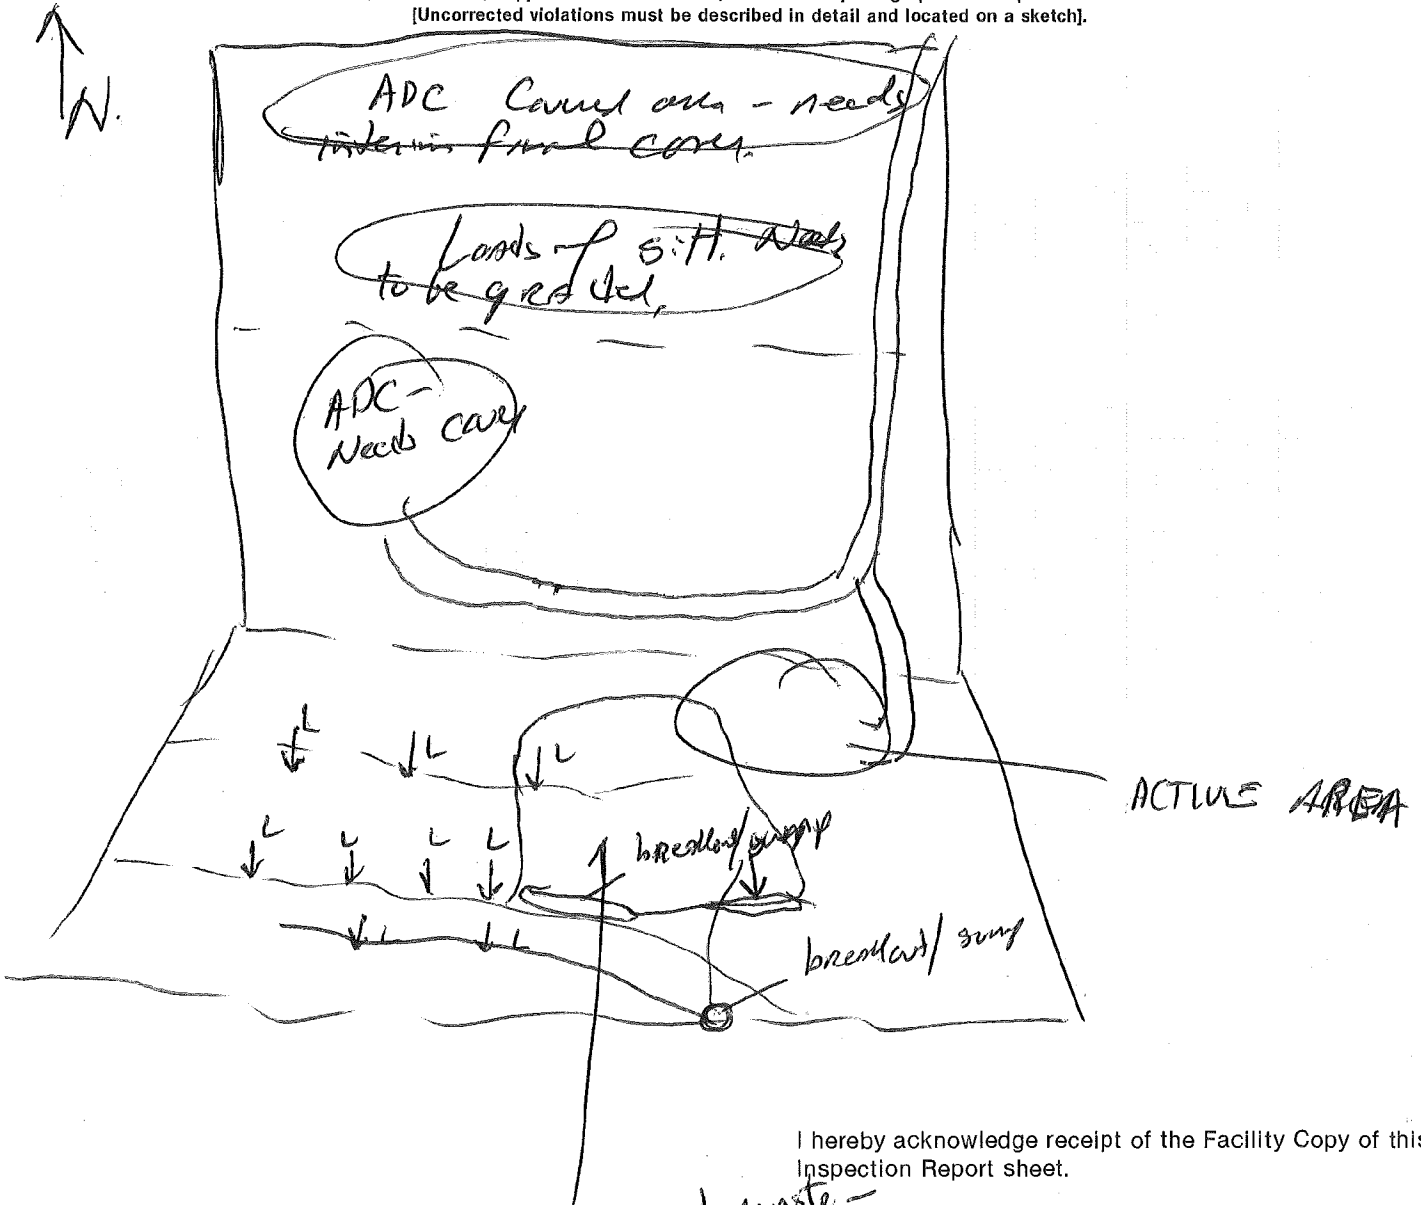 [Uncorrected violations must be described in detail and located on a sketch].
N.
ADC Covered area - needs
interim final cover.
Loads of silt. Needs
to be graded.
ADC -
Needs cover
L
L
L
ACTIVE AREA
L
L
L
L
breakout/
L
L
breakout/
I hereby acknowledge receipt of the Facility Copy of this
Inspection Report sheet.